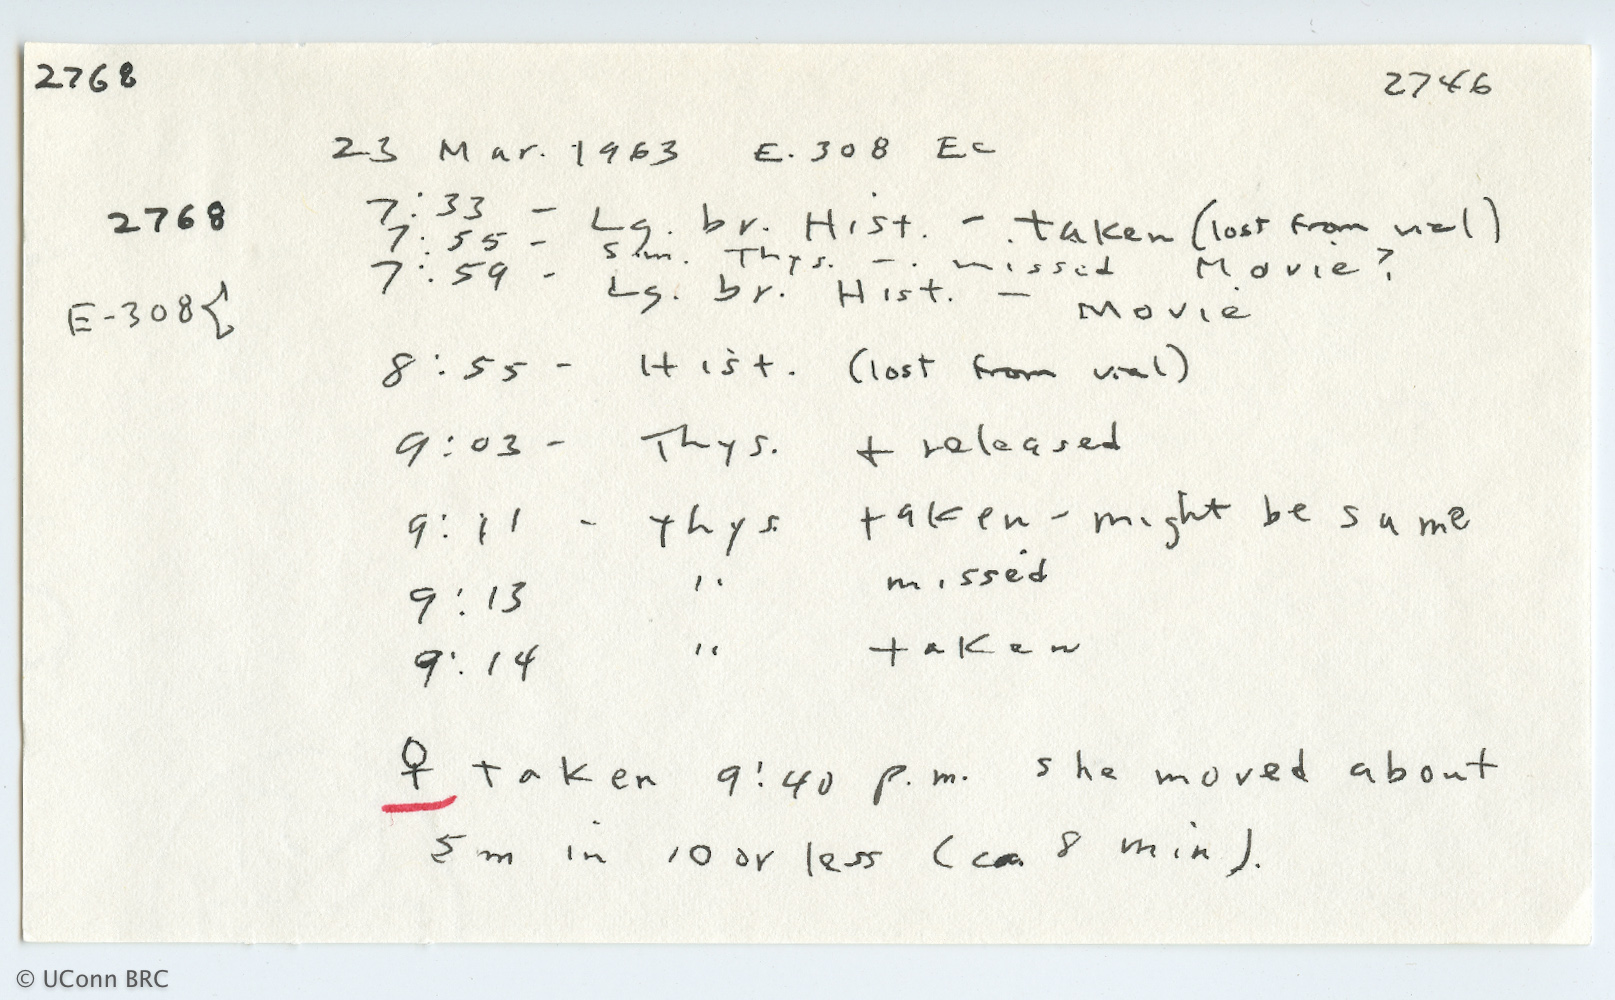 2768 2746
23 Mar. 1963 E. 308 Ec
2768 7:33 - Lg. br. Hist. - taken (lost from vial)
7:55 - Sm. Thys. - missed Movie?
7:59 - Lg. br. Hist. - Movie
E-308{
8:55 - Hist. (lost from vial)
9:03 - Thys. + released
9:11 - Thys taken - might be same
9:13 " missed
9:14 " taken
♀ taken 9:40 p.m. she moved about
5m in 10 or less (ca 8 min).
© UConn BRC